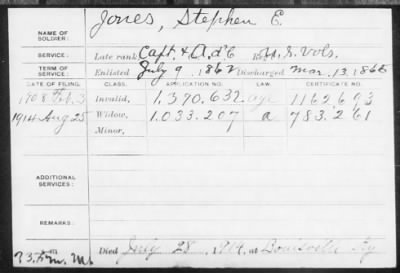 Jones, Stephen E.
NAME OF SOLDIER:
SERVICE: Late rank, Capt. & A.d.C Reg't U.S. Vols,
TERM OF SERVICE: Enlisted July 9, 1862 Discharged Mar. 13, 1866
DATE OF FILING. CLASS. APPLICATION NO. LAW. CERTIFICATE NO.
1908 Feb. 3 Invalid, 1.390.632 age 1162.693
1914 Aug 25 Widow, 1.033.207 a 783.261
Minor,
ADDITIONAL SERVICES:
REMARKS:
Died July 28, 1914, at Louisville Ky